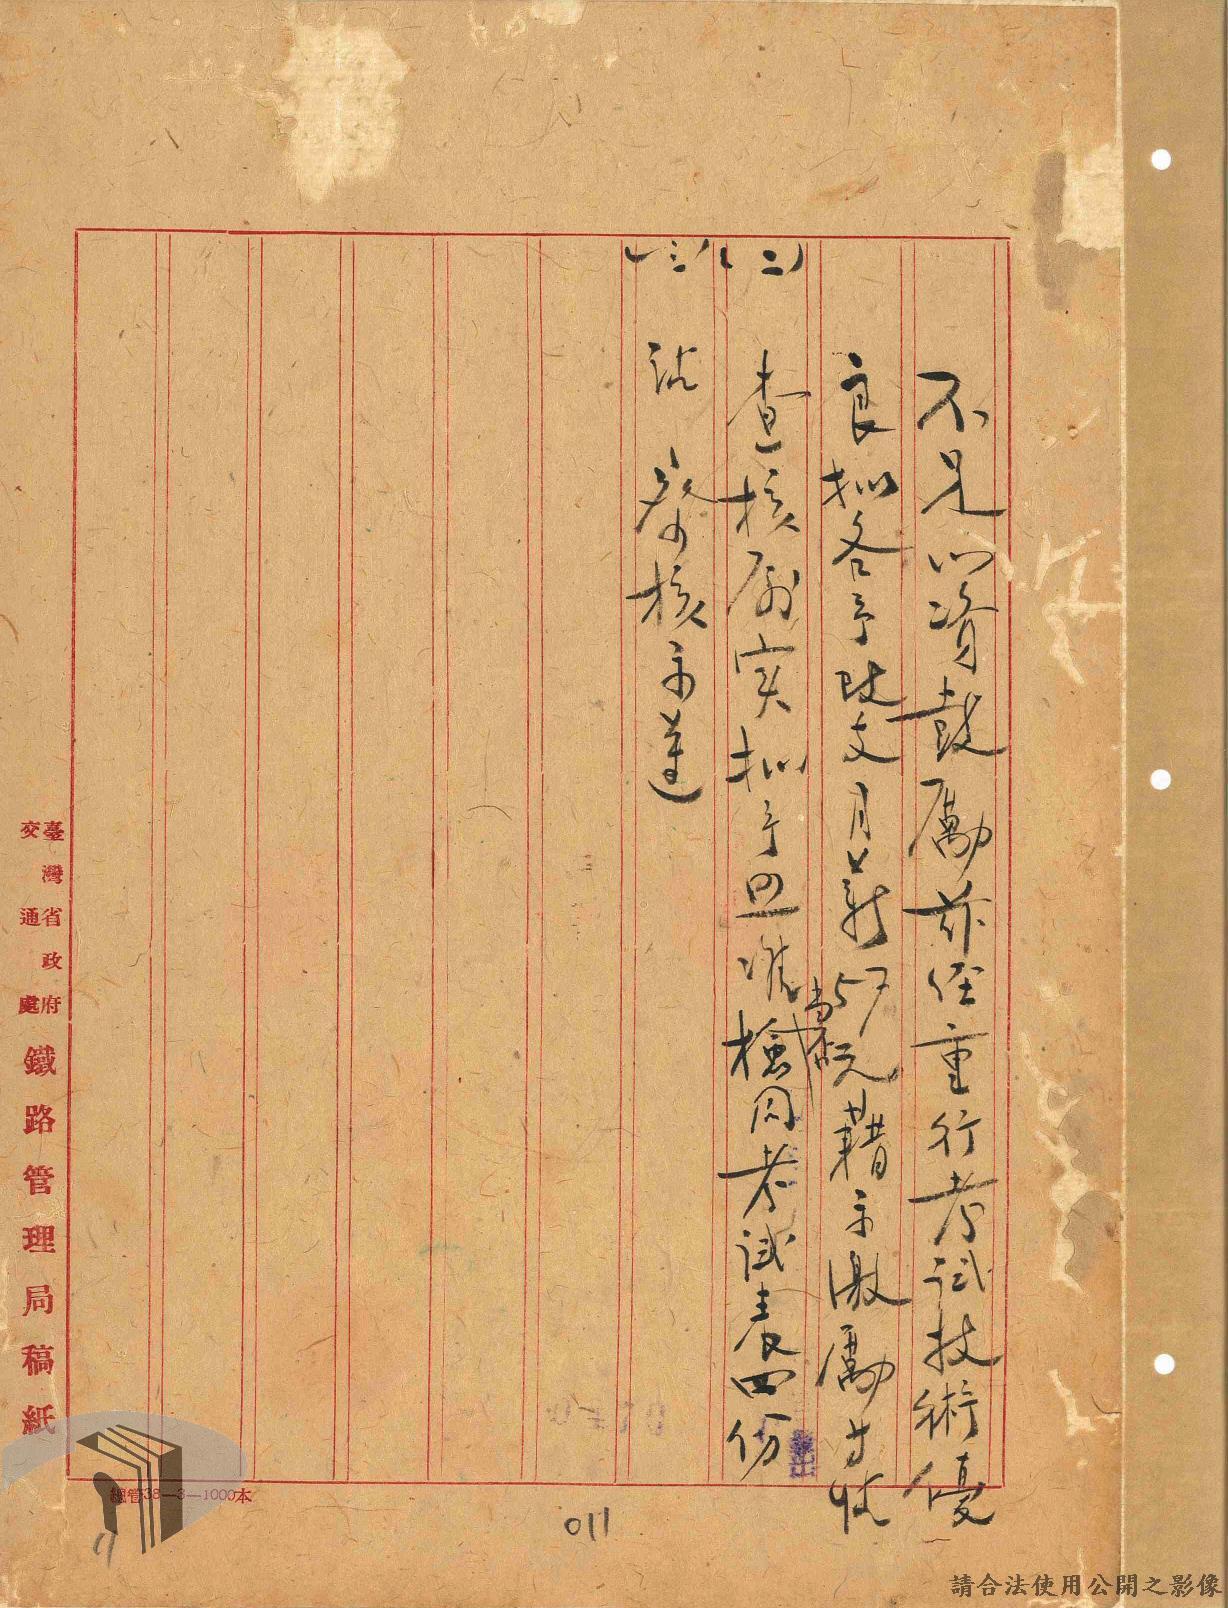 不足以資鼓勵茲經重行考試技術優
良擬各予改支月薪57元藉示激勵等情
當否
(二)
查核屬實擬予照准檢同考試表四份
(三)
請 鑒核示遵
臺灣省政府
交通處
鐵路管理局稿紙
總管38—3—1000本
011
請合法使用公開之影像